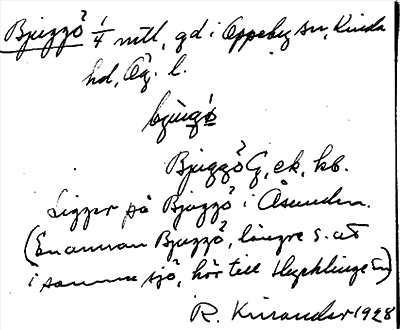 Bjuggö 1/4 mtl, gd i Oppeby sn, Kinda
hd, Ög. l.
Bjuggö G, ek, kb.
Ligger på Bjuggö i Åsunden.
(En annan Bjuggö, längre s. ut
i samma sjö, hör till Hycklinge sn)
R. Kinander 1928